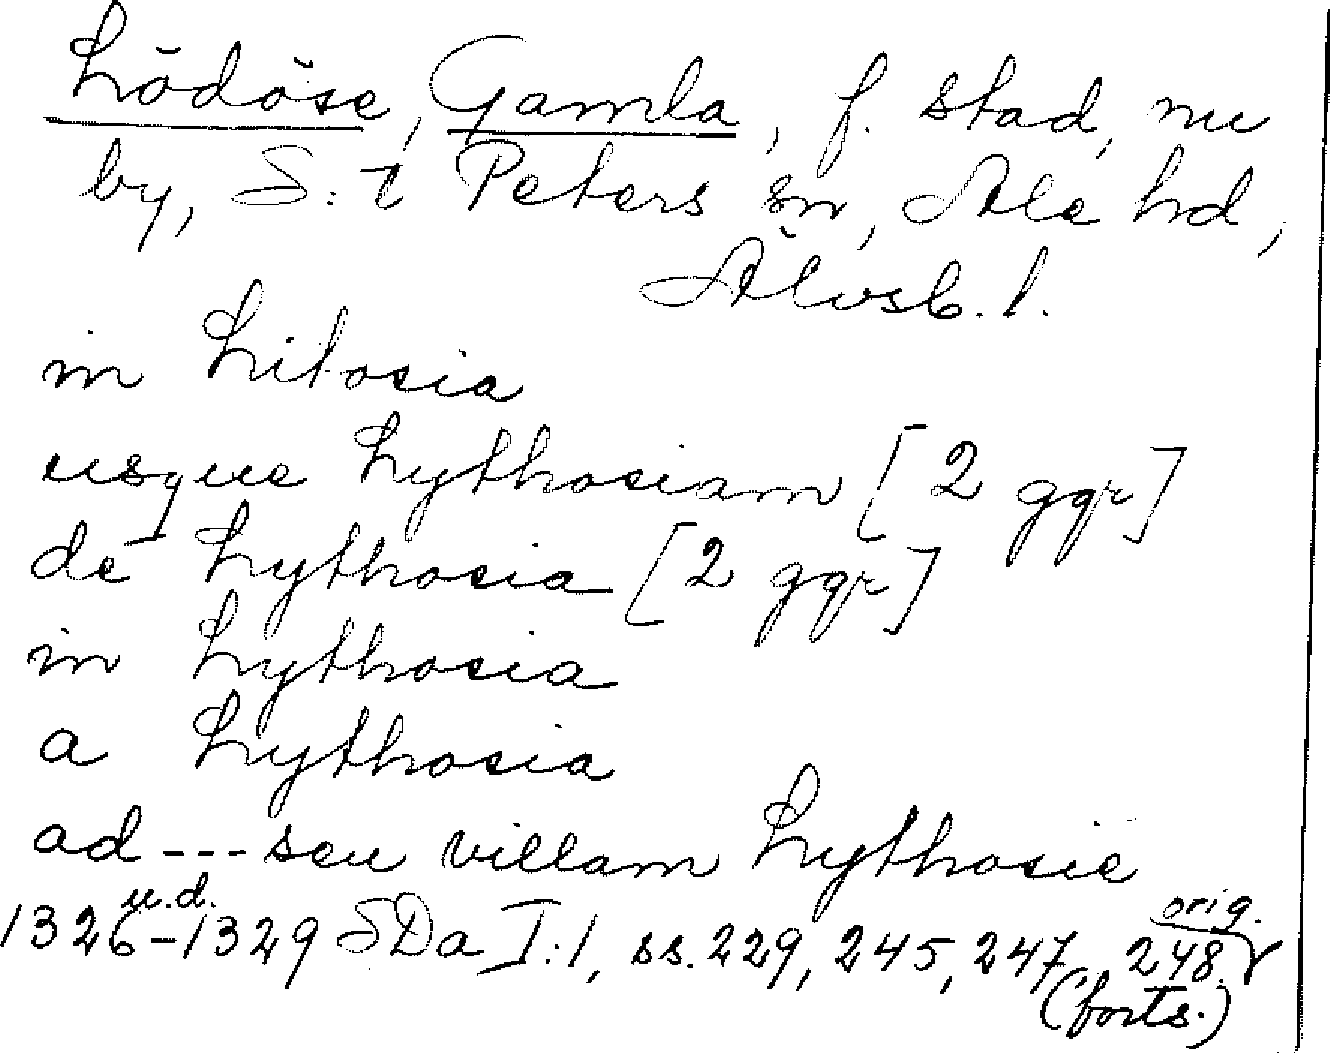 Lödöse, Gamla, f. stad, nu
by, S:t Peters sn, Ale hd,
Älvsb. l.
in Litosia
usque Lythosiam [2 ggr]
de Lythosia [2 ggr]
in Lythosia
a Lythosia
ad --- seu villam Lythosie
1326-1329 u.d. SDa I:1, ss. 229, 245, 247, 248. orig.
(forts.)